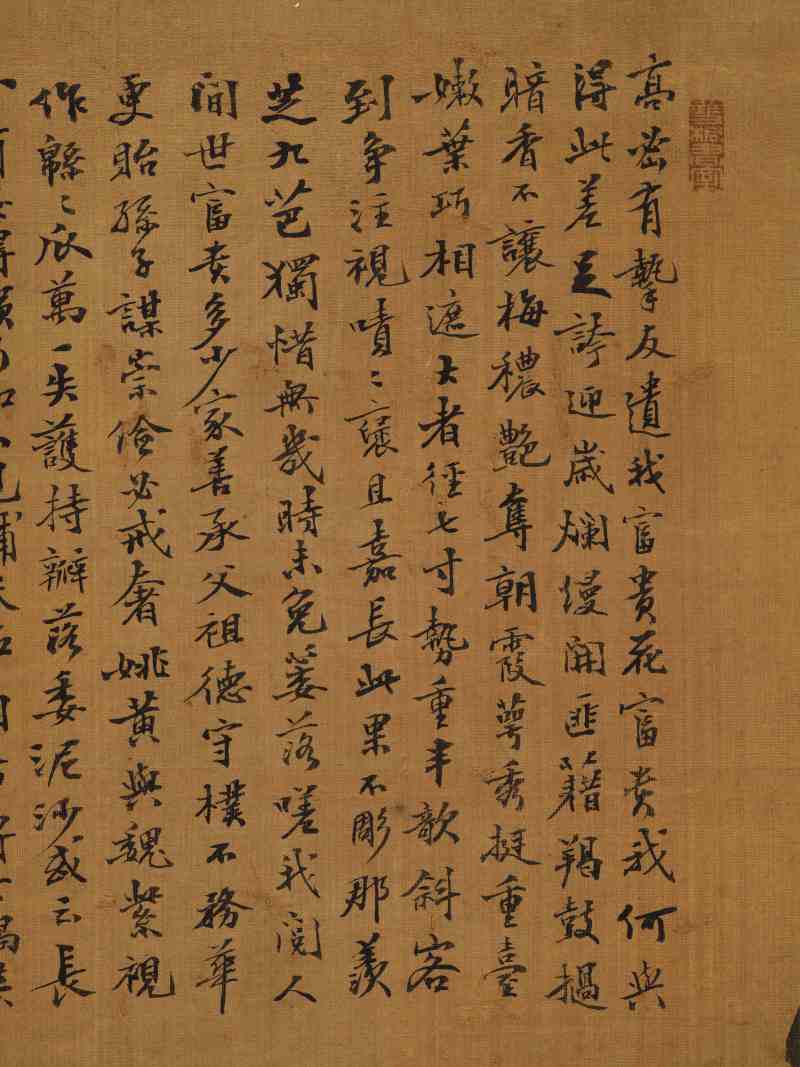 高密有摯友遺我富貴花富貴我何與
得此差足誇迎歲爛熳開匪藉羯鼓撾
暗香不讓梅穠艷奪朝霞萼秀挺重臺
嫩葉巧相遮大者徑七寸勢重半欹斜客
到爭注視嘖〻褒且嘉長此果不彫那羨
芝九葩獨惜無幾時未免萎落嗟我閱人
間世富貴多少家善承父祖德守樸不務華
更貽孫子謀崇儉必戒奢姚黃與魏紫視
作緜〻瓜萬一失護持瓣落委泥沙或云長